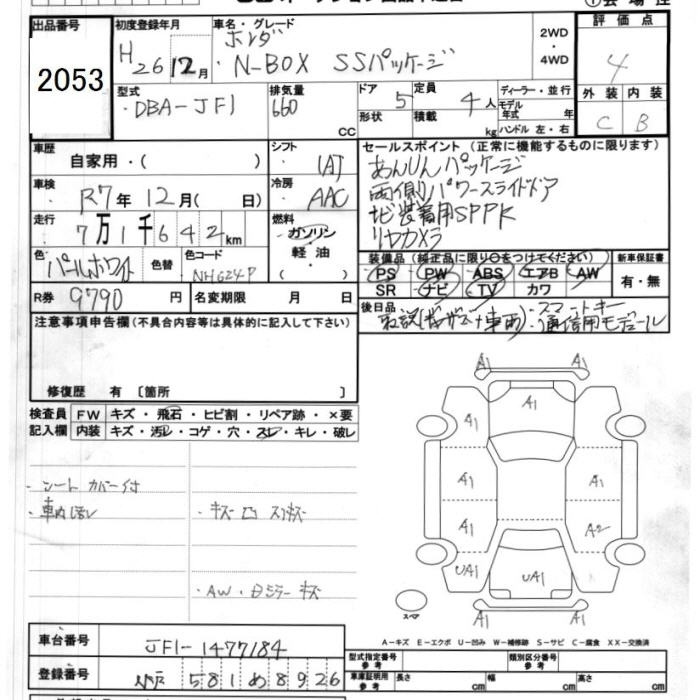 出品番号 2053
初度登録年月 H26 12月
車名・グレード ホンダ N-BOX SSパッケージ
2WD・4WD
評価点 4
外装 内装
C B
型式 DBA-JF1
排気量 660 CC
ドア 5
形状
定員 4人
積載 kg
ディーラー・並行
モデル年式 年
ハンドル 左・右
車歴 自家用・( )
シフト IAT
車検 R7年12月(日)
冷房 AAC
走行 7万1千642km
燃料 ガソリン 軽油
色 パールホワイト
色替
色コード NH624P
R券 9790円
名変期限 月 日
セールスポイント(正常に機能するものに限ります)
あんしんパッケージ
両側パワースライドドア
ナビ装着用SPPK
リヤカメラ
装備品(純正品に限り○をつけてください)
PS PW ABS エアB AW
SR ナビ TV カワ
新車保証書 有・無
後日品 スマートキー
通信用モデュール
注意事項申告欄(不具合内容等は具体的に記入して下さい)
修復歴 有〔箇所 〕
検査員記入欄
FW キズ・飛石・ヒビ割・リペア跡・×要
内装 キズ・汚レ・コゲ・穴・スレ・キレ・破レ
・シートカバー付
・キズ凹スリキズ
・AW・ミラーキズ
A1 A1
A1
A1 A1
A1 A1
A1 A2
UA1 UA1 A1
A1 A1
スペア
A-キズ E-エクボ U-凹み W-補修跡 S-サビ C-腐食 XX-交換済
車台番号 JF1-1477184
登録番号 水戸 581 め 8926
型式指定番号 参考
類別区分番号 参考
車庫証明用 参考 長さ cm 幅 cm 高さ cm